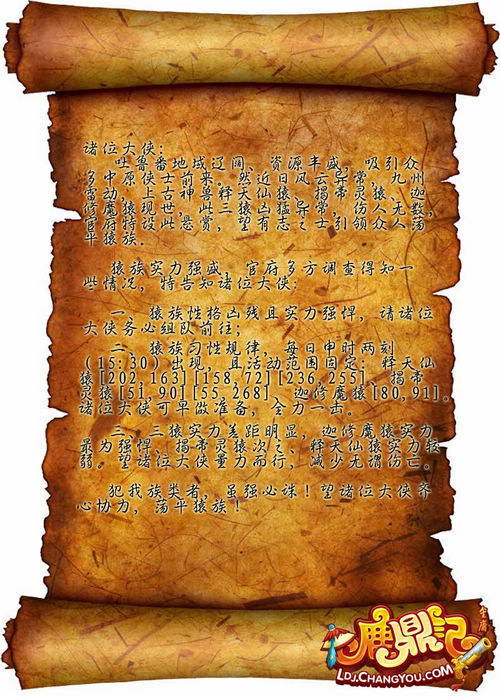 诸位大侠：
吐鲁番地域辽阔，资源丰盛，吸引众
多中原侠士前来。然近日风云异常，九州
雷动，上古神兽释天仙猿、揭帝灵猿、迦
修魔猿现世，此三猿凶猛异常，伤人无数，
官府特设此悬赏，望有志之士引领众人荡
平猿族。
猿族实力强盛，官府多方调查得知一
些情况，特告知诸位大侠：
一、猿族性格凶残且实力强悍，请诸位
大侠务必组队前往；
二、猿族习性规律，每日申时两刻
(15:30)出现，且活动范围固定：释天仙
猿[202,163][158,72][236,255]、揭帝
灵猿[51,90][55,268]、迦修魔猿[80,91]。
诸位大侠可早做准备，全力一击。
三、三猿实力差距明显，迦修魔猿实力
最为强悍、揭帝灵猿次之、释天仙猿实力较
弱。望诸位大侠量力而行，减少无谓伤亡。
犯我族类者，虽强必诛！望诸位大侠齐
心协力，荡平猿族！
金庸
鹿鼎记
LDJ.CHANGYOU.COM